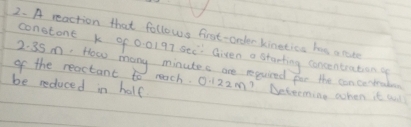 2- A reaction that follows first-order kinetics has a rate
constant k of 0.0197 sec⁻¹. Given a starting concentration of
2.35 m. How many minutes are required for the concentration
of the reactant to reach 0.122 m? Determine when it will
be reduced in half